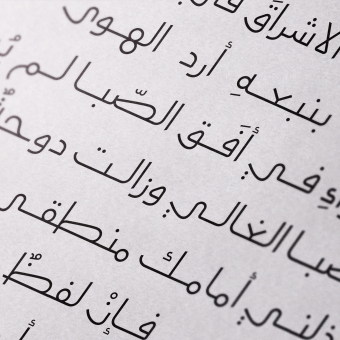 الاشراقَ
بنبعهِ أرد الهوى
في أَفَق الصّبا لم
صبا الغالي وزالت
ذلني أمامك منطقي
فإنْ لفظٌ